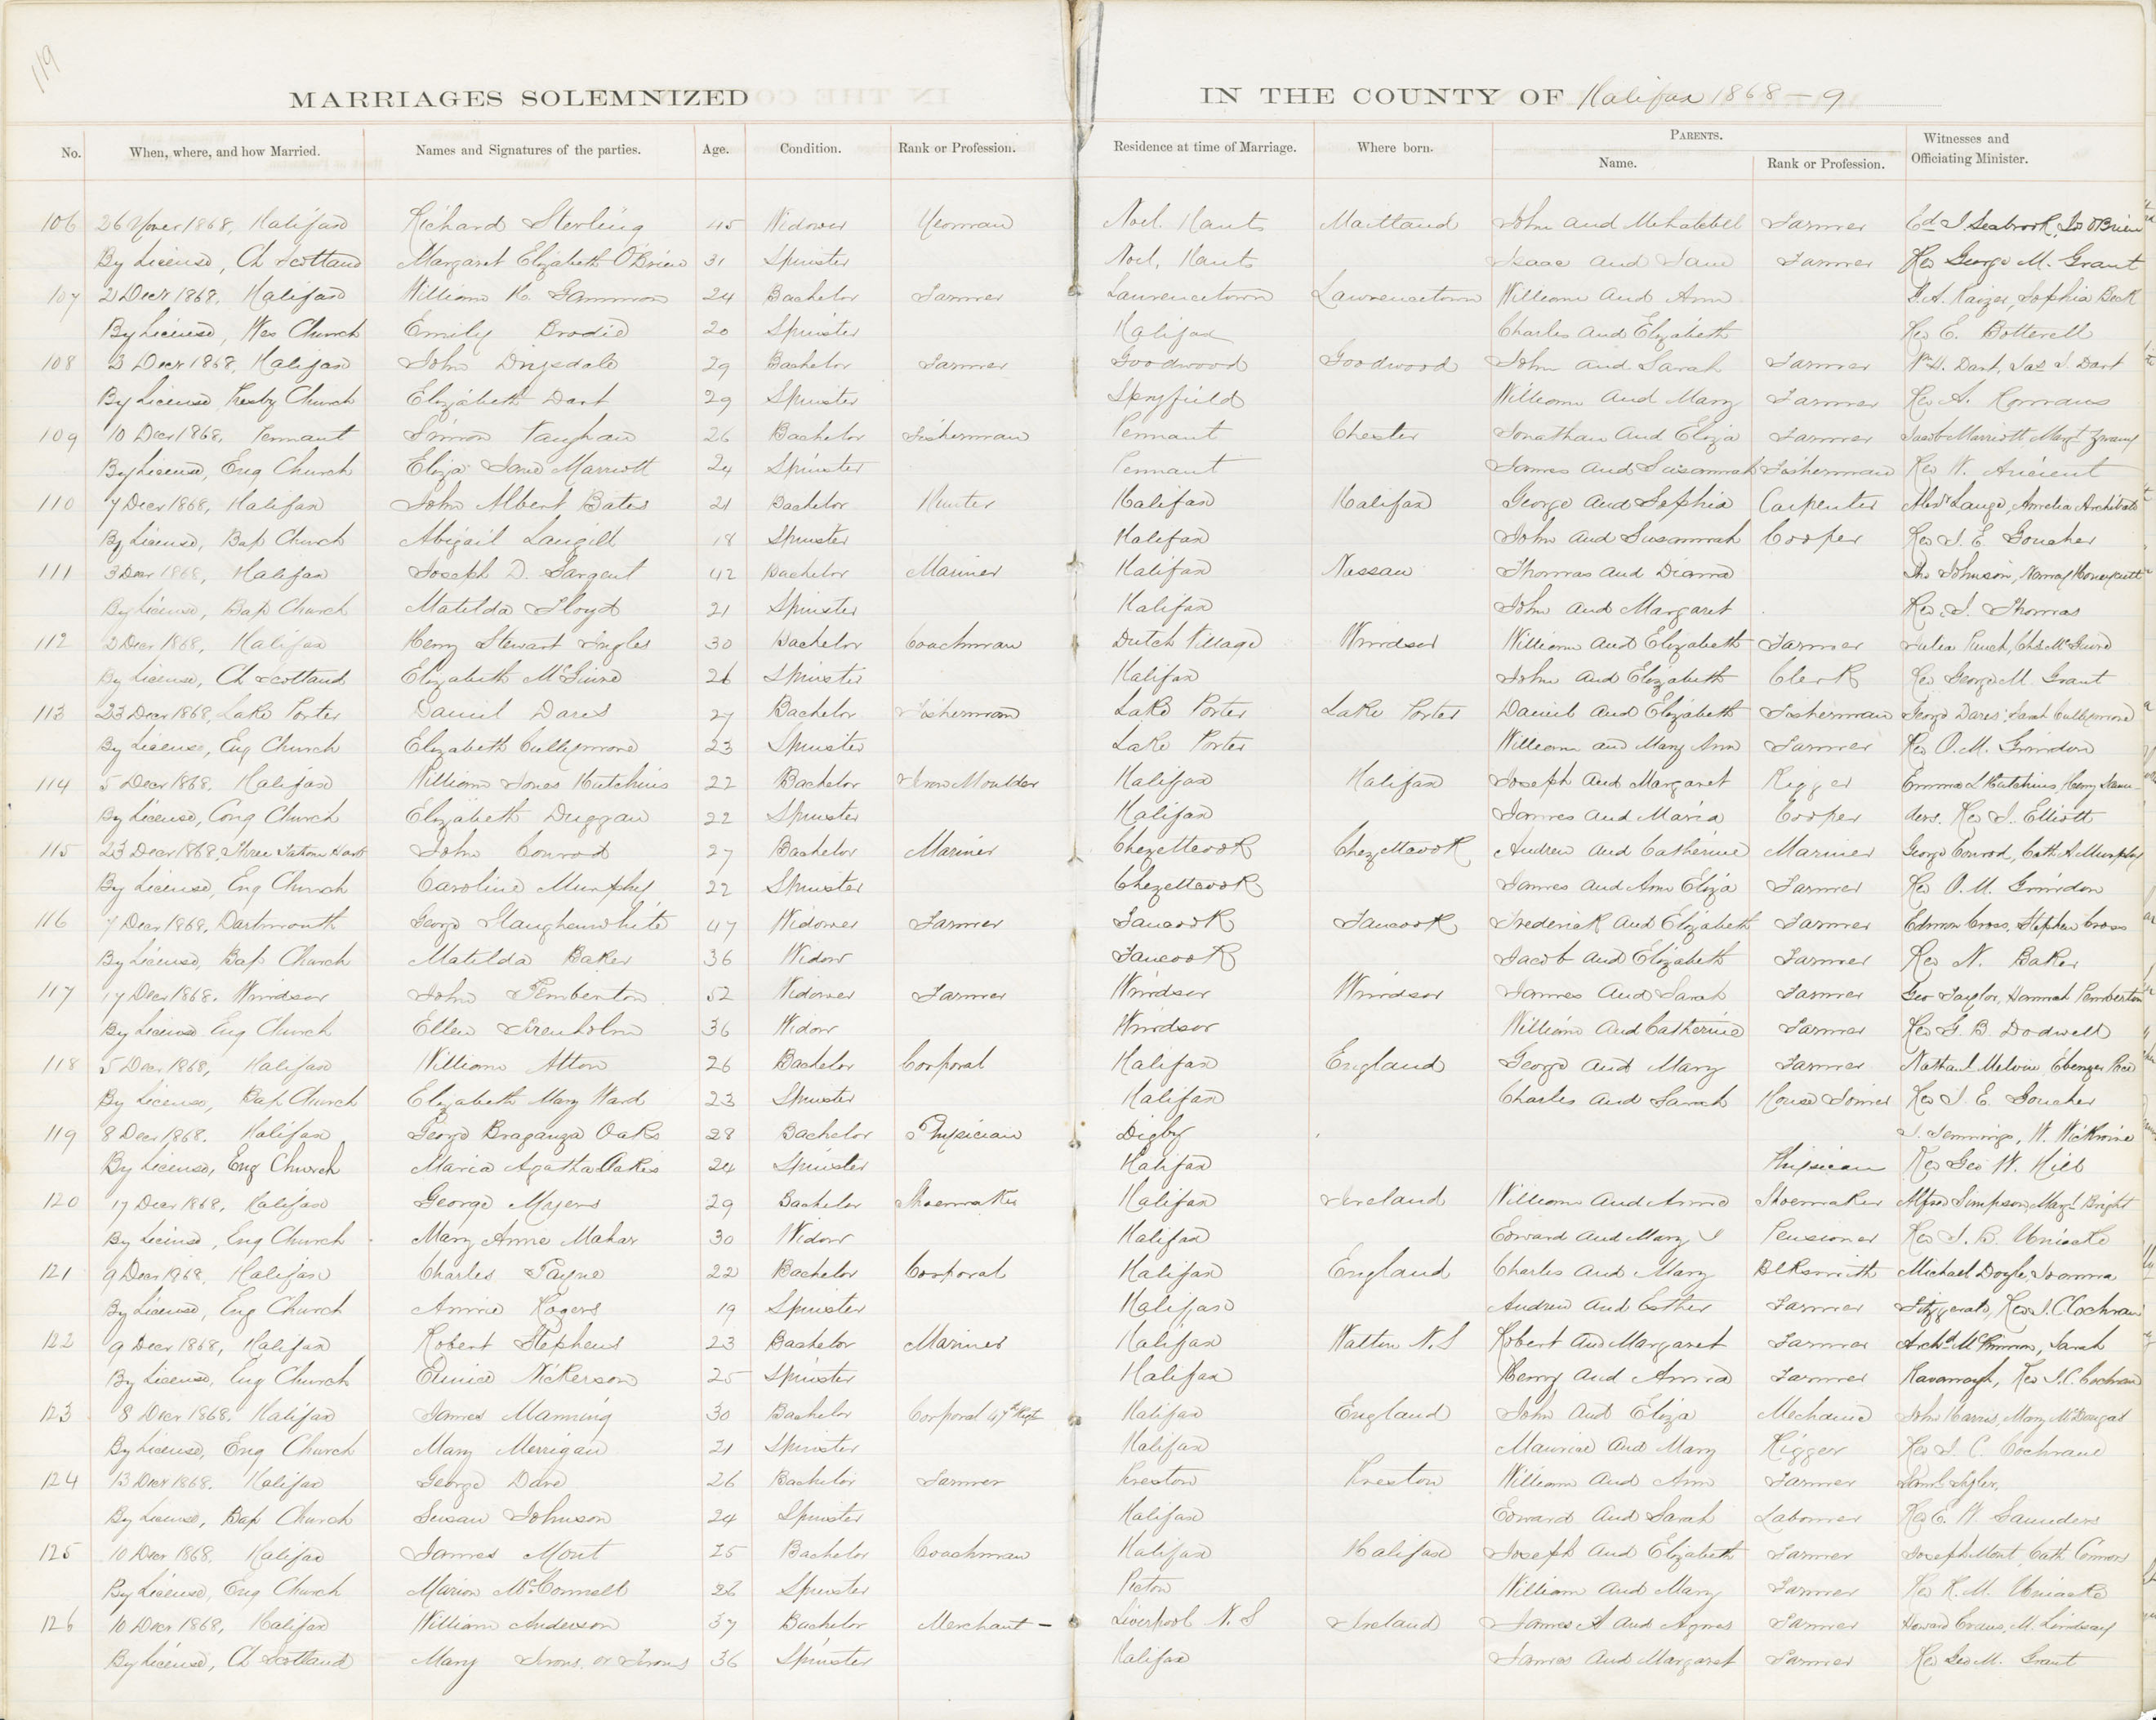 119
MARRIAGES SOLEMNIZED IN THE COUNTY OF Halifax 1868-9
No. When, where, and how Married. Names and Signatures of the parties. Age. Condition. Rank or Profession. Residence at time of Marriage. Where born. PARENTS. Name. Rank or Profession. Witnesses and Officiating Minister.
106 26 Nover 1868, Halifax Richard Sterling 45 Widower Yeoman Noel, Hants Maitland John and Mehalebel Farmer Ed J. Seabrook, Js O'Brien
By License, Ch Scotland Margaret Elizabeth O'Brien 31 Spinster Noel, Hants Isaac and Jane Farmer Rev George M. Grant
107 2 Decr 1868, Halifax William H. Gammon 24 Bachelor Farmer Lawrencetown Lawrencetown William and Ann Kaizer, Sophia Beck
By License, Wes Church Emily Brodie 20 Spinster Halifax Charles and Elizabeth Rev E. Botterell
108 3 Decr 1868, Halifax John Drysdale 29 Bachelor Farmer Goodwood Goodwood John and Sarah Farmer Wm H. Dart, Jas J. Dart
By License, Presby Church Elizabeth Dart 29 Spinster Spryfield William and Mary Farmer Rev A. Romans
109 10 Decr 1868, Pennant Simon Vaughan 26 Bachelor Fisherman Pennant Chester Jonathan and Eliza Farmer Jacob Marriott, Margt
By License, Eng Church Eliza Jane Marriott 24 Spinster Pennant James and Susannah Fisherman Rev W. Ancient
110 7 Decr 1868, Halifax John Albert Bates 21 Bachelor Halifax Halifax George and Sophia Carpenter Alexr Lange, Amelia Archibald
By License, Bap Church Abigail Langill 18 Spinster Halifax John and Susannah Cooper Rev J. E. Goucher
111 3 Decr 1868, Halifax Joseph D. Sargent 42 Bachelor Mariner Halifax Nassau Thomas and Diana Johnson, Nancy Honeycutt
By License, Bap Church Matilda Floyd 21 Spinster Halifax John and Margaret Rev J. Thomas
112 2 Decr 1868, Halifax Henry Stewart Ingles 30 Bachelor Coachman Dutch Village Windsor William and Elizabeth Farmer Julia Chs McGuire
By License, Ch Scotland Elizabeth McGuire 26 Spinster Halifax John and Elizabeth Clerk Rev George M. Grant
113 23 Decr 1868, Lake Porter Daniel Dares 27 Bachelor Fisherman Lake Porter Lake Porter Daniel and Elizabeth Fisherman George Dares, Sarah Cullymore
By License, Eng Church Elizabeth Cullymore 23 Spinster Lake Porter William and Mary Ann Farmer Rev O. M. Grindon
114 5 Decr 1868, Halifax William Jones Hutchins 22 Bachelor Iron Moulder Halifax Halifax Joseph and Margaret Rigger Emma L Hutchins, Henry Saun-
By License, Cong Church Elizabeth Duggan 22 Spinster Halifax James and Maria Cooper ders. Rev J. Elliott
115 23 Decr 1868, Three Fathom Harb John Conrod 27 Bachelor Mariner Chezettcook Chezettcook Andrew and Catherine Mariner George Conrod, Cath A. Murphy
By License, Eng Church Caroline Murphy 22 Spinster Chezettcook James and Ann Eliza Farmer Rev O. M. Grindon
116 7 Decr 1868, Dartmouth George Slaughenwhite 47 Widower Farmer Tancook Tancook Frederick and Elizabeth Farmer Edmon Cross, Stephen Cross
By License, Bap Church Matilda Baker 36 Widow Tancook Jacob and Elizabeth Farmer Rev N. Baker
117 17 Decr 1868. Windsor John Pemberton 52 Widower Farmer Windsor Windsor James and Sarah Farmer Geo Taylor, Hannah Pemberton
By License Eng Church Ellen Trenholm 36 Widow Windsor William and Catherine Farmer Rev G. B. Dodwell
118 5 Decr 1868, Halifax William Atton 26 Bachelor Corporal Halifax England George and Mary Farmer Nathanl Melvin, Ebenezer
By License, Bap Church Elizabeth Mary Ward 23 Spinster Halifax Charles and Sarah House Joiner Rev J. E. Goucher
119 8 Decr 1868. Halifax George Braganza Oaks 28 Bachelor Physician Digby J. Jennings, W.
By License, Eng Church Maria Agatha Oakes 24 Spinster Halifax Physician Rev Geo W. Hill
120 17 Decr 1868, Halifax George Myers 29 Bachelor Shoemaker Halifax Ireland William and Anne Shoemaker Alfred Simpson, Margt Bright
By License, Eng Church Mary Anne Mahar 30 Widow Halifax Edward and Mary J Pensioner Rev J. B. Uniacke
121 9 Decr 1868, Halifax Charles Payne 22 Bachelor Corporal Halifax England Charles and Mary Blksmith Michael Doyle, Joanna
By License, Eng Church Annie Rogers 19 Spinster Halifax Andrew and Esther Farmer Fitzgerald, Rev J. C Cochran
122 9 Decr 1868, Halifax Robert Stephens 23 Bachelor Mariner Halifax Walton N.S Robert and Margaret Farmer Archd McKinnon, Sarah
By License, Eng Church Eunice Nickerson 25 Spinster Halifax Henry and Anna Farmer Kavanagh, Rev J. C. Cochran
123 8 Decr 1868, Halifax James Manning 30 Bachelor Corporal 47th Regt Halifax England John and Eliza Mechanic John Harris, Mary McDougal
By License, Eng Church Mary Merrigan 21 Spinster Halifax Maurice and Mary Rigger Rev J. C. Cochrane
124 13 Decr 1868. Halifax George Dare 26 Bachelor Farmer Preston Preston William and Ann Farmer Saml
By License, Bap Church Susan Johnson 24 Spinster Halifax Edward and Sarah Labourer Rev E. W. Saunders
125 10 Decr 1868. Halifax James Mont 25 Bachelor Coachman Halifax Halifax Joseph and Elizabeth Farmer Joseph Mont, Cath Connors
By License, Eng Church Marion McConnell 26 Spinster Picton William and Mary Farmer Rev R. M. Uniacke
126 10 Decr 1868, Halifax William Anderson 37 Bachelor Merchant - Liverpool N.S Ireland James A and Agnes Farmer Howard Evans, M. Lindsay
By License, Ch Scotland Mary Irons or Irons 36 Spinster Halifax James and Margaret Farmer Rev Geo M. Grant